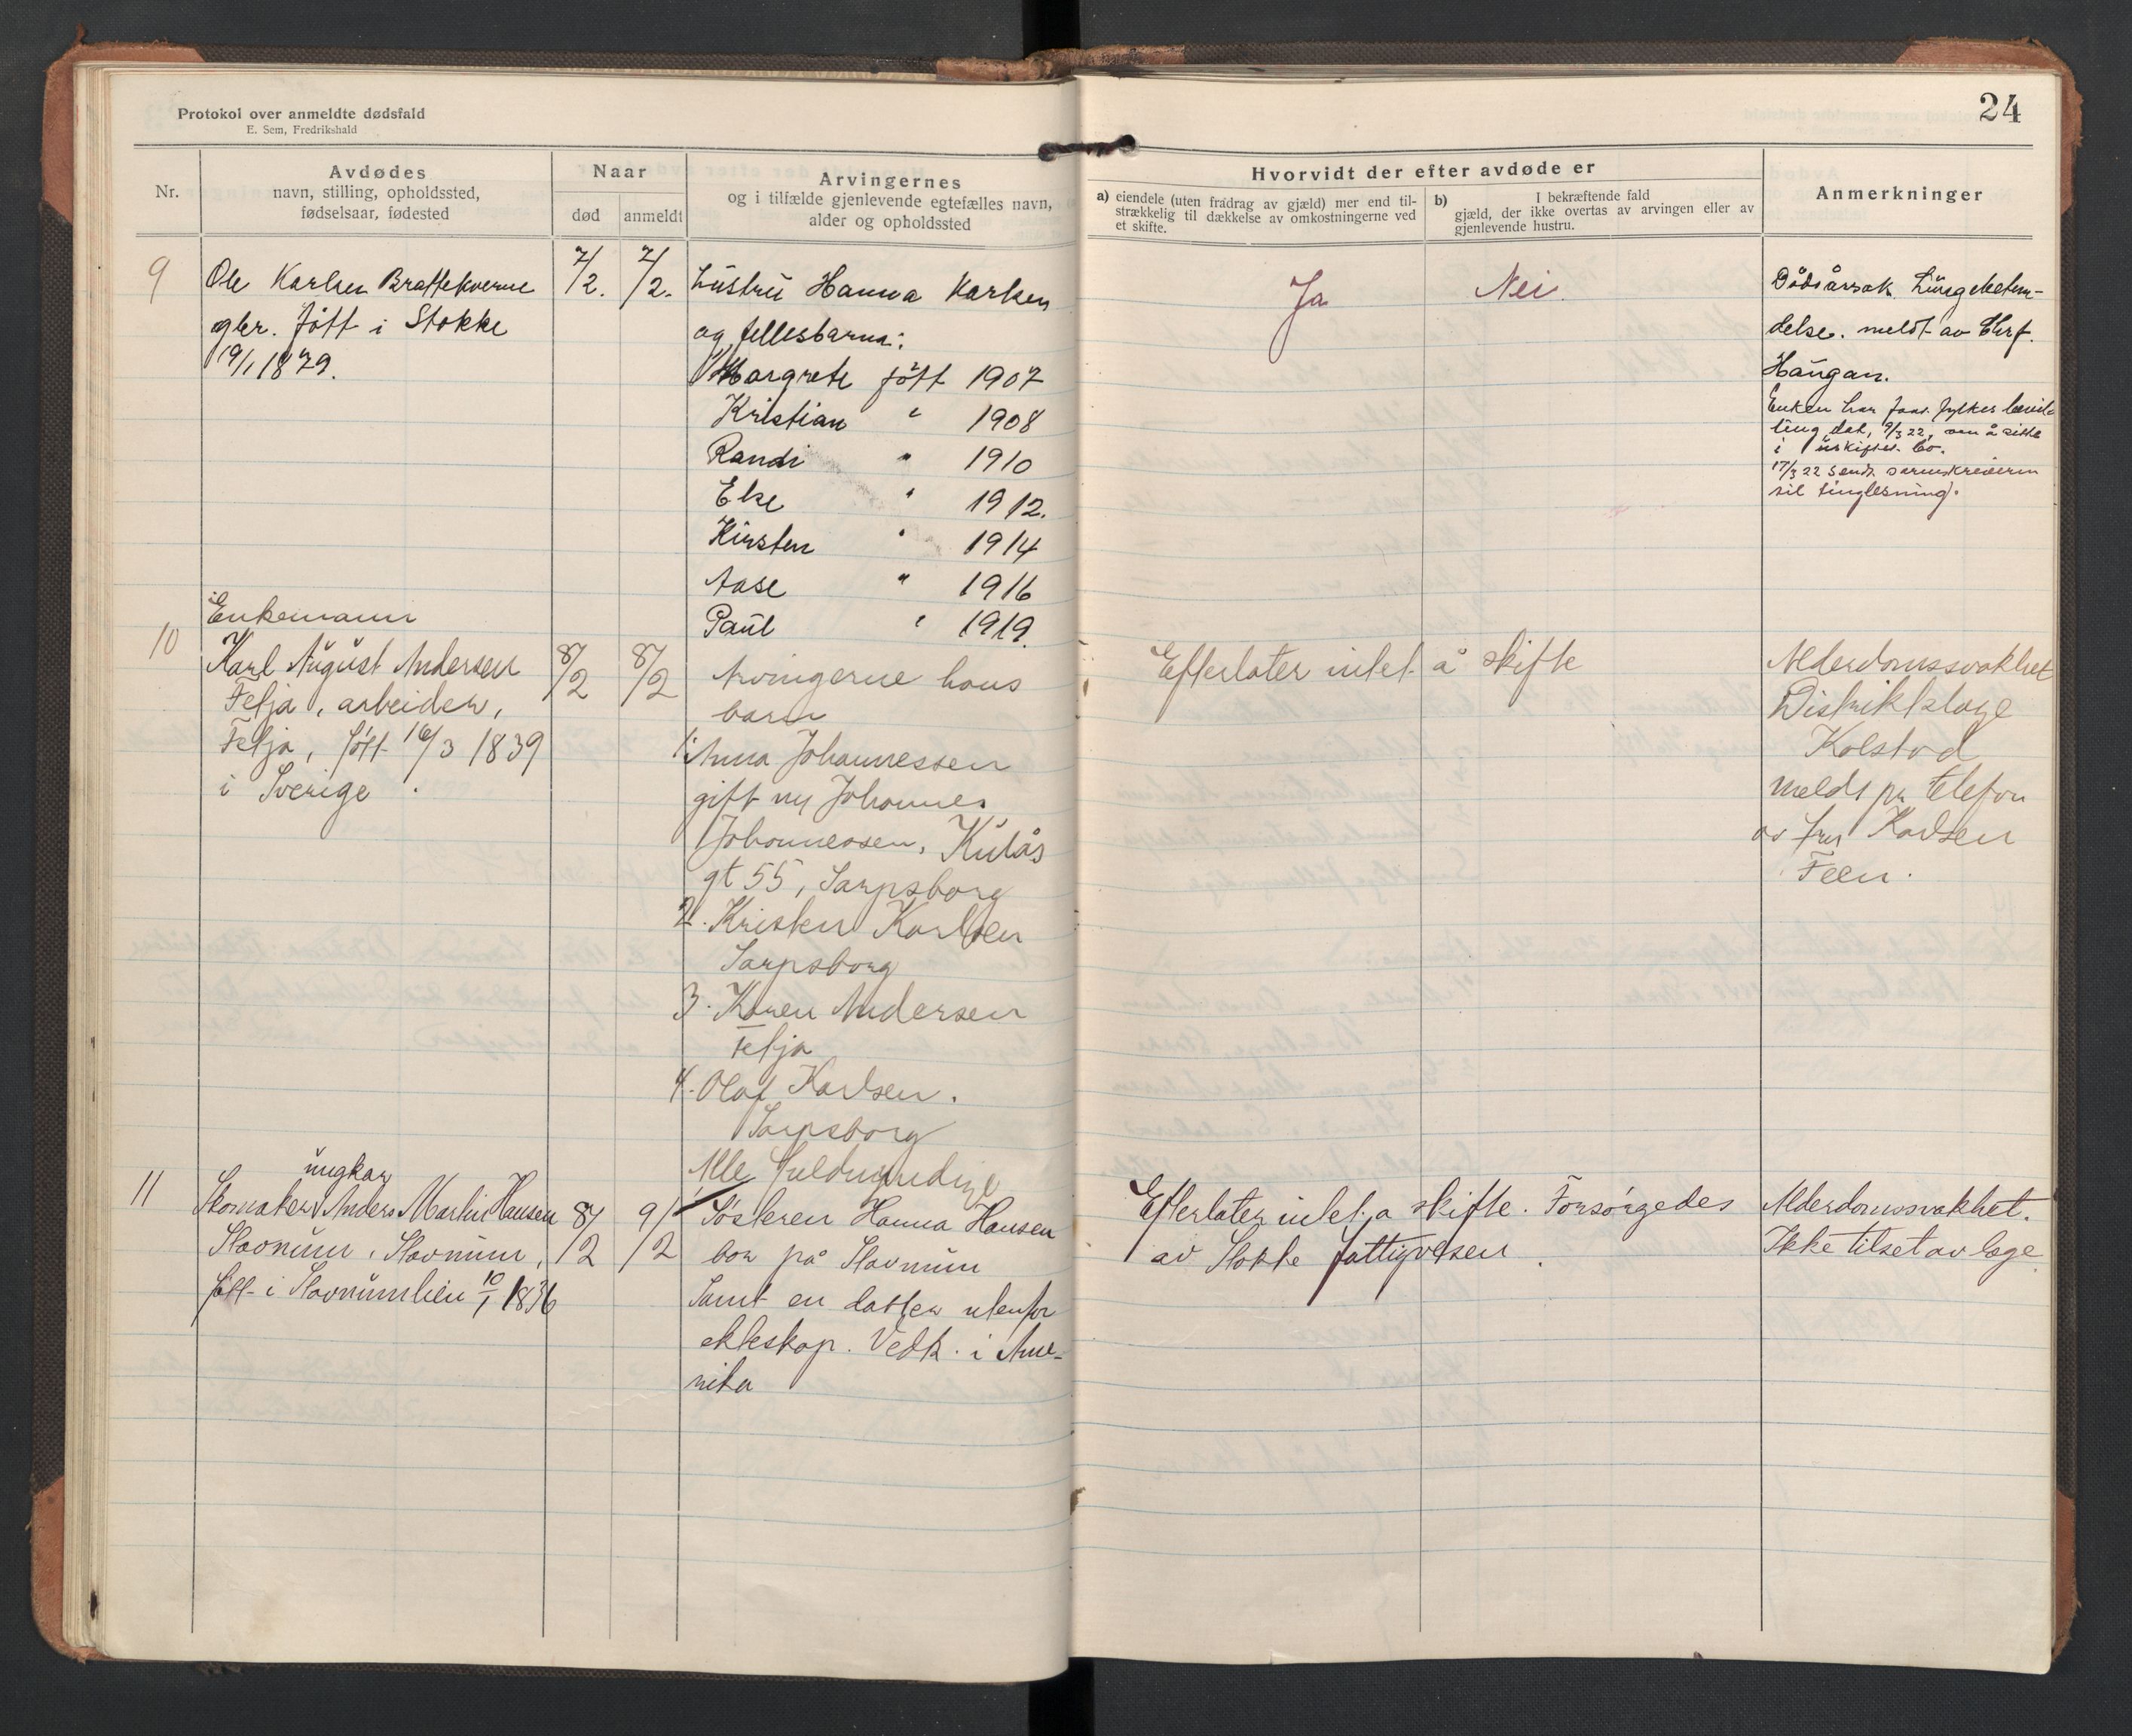 Protokol over anmeldte dødsfald
E. Sem, Fredrikshald
24
Nr.
Avdødes
navn, stilling, opholdssted,
fødselsaar, fødested
Naar
død
anmeldt
Arvingernes
og i tilfælde gjenlevende egtefælles navn,
alder og opholdssted
Hvorvidt der efter avdøde er
a) eiendele (uten fradrag av gjæld) mer end til-
strækkelig til dækkelse av omkostningerne ved
et skifte.
b) I bekræftende fald
gjæld, der ikke overtas av arvingen eller av
gjenlevende hustru.
Anmerkninger
9
Ole Karlsen Brattekverne
gbr. født i Stokke
19/1 1879.
7/2.
7/2.
Hustru Hanna Karlsen
og fellesbarna:
Margrete født 1907
Kristian " 1908
Randi " 1910
Else " 1912.
Kirsten " 1914
Aase " 1916
Paul " 1919.
Ja
Nei
Dødsårsak Lungebeten-
delse. meldt av
Haugan.
Enken har
ting dat, 9/3 22, om å sitte
i uskiftet bo.
17/3 22 sendt sorenskriveren
til tinglesning.
10
Enkemann
Karl August Andersen
Felja, arbeider,
Felja, født 16/3 1839
i Sverige.
8/2
8/2
Arvingerne hans
barn
1. Anna Johannessen
gift m Johannes
Johannessen, Kulås
gt 55, Sarpsborg
2. Kristen Karlsen
Sarpsborg
3. Karen Andersen
Felja
4. Olaf Karlsen.
Sarpsborg
Alle fuldmyndige
Efterlater intet å skifte
Alderdomssvakhet
Distriktslæge
Kolstad
meldt pr telefon
av fru Karlsen
Feen.
11
ungkar
Skomaker Anders Martin Hansen
Slavnum, Slavnum,
født i Slavnumlien 10/1 1836
8/2
9/2
Søsteren Hanna Hansen
bor på Slavnum
Samt en datter utenfor
ekteskap. Vedk. i Ame-
rika
Efterlater intet å skifte. Forsørgedes
av Stokke fattigvesen.
Alderdomssvakhet.
Ikke tilset av læge